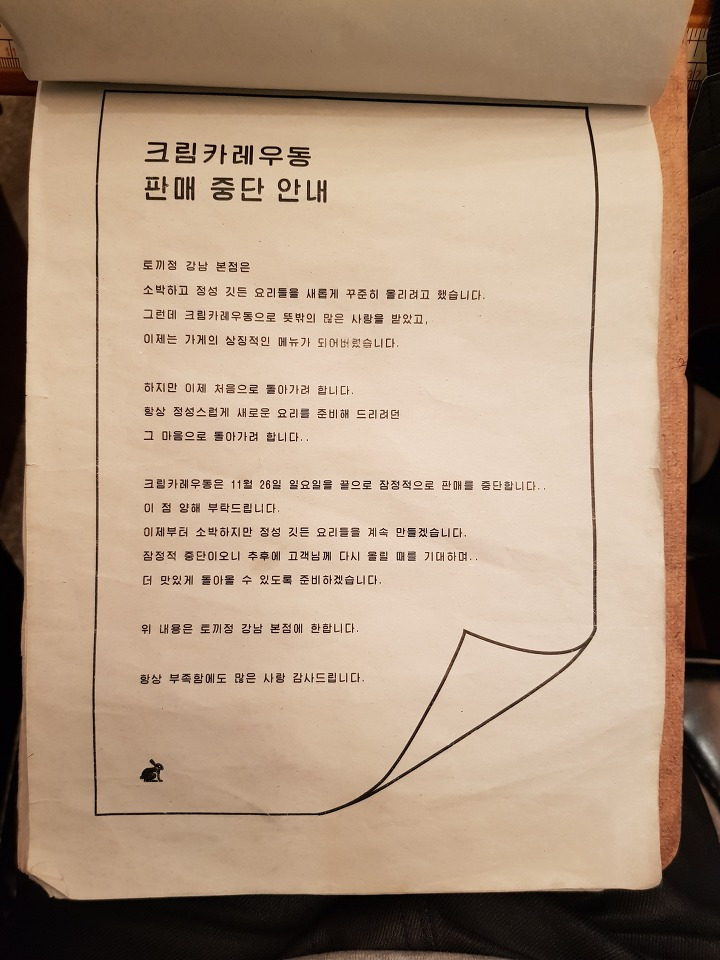 크림카레우동
판매 중단 안내
토끼정 강남 본점은
소박하고 정성 깃든 요리들을 새롭게 꾸준히 올리려고 했습니다.
그런데 크림카레우동으로 뜻밖의 많은 사랑을 받았고,
이제는 가게의 상징적인 메뉴가 되어버렸습니다.
하지만 이제 처음으로 돌아가려 합니다.
항상 정성스럽게 새로운 요리를 준비해 드리려던
그 마음으로 돌아가려 합니다..
크림카레우동은 11월 26일 일요일을 끝으로 잠정적으로 판매를 중단합니다..
이 점 양해 부탁드립니다.
이제부터 소박하지만 정성 깃든 요리들을 계속 만들겠습니다.
잠정적 중단이오니 추후에 고객님께 다시 올릴 때를 기대하며..
더 맛있게 돌아올 수 있도록 준비하겠습니다.
위 내용은 토끼정 강남 본점에 한합니다.
항상 부족함에도 많은 사랑 감사드립니다.